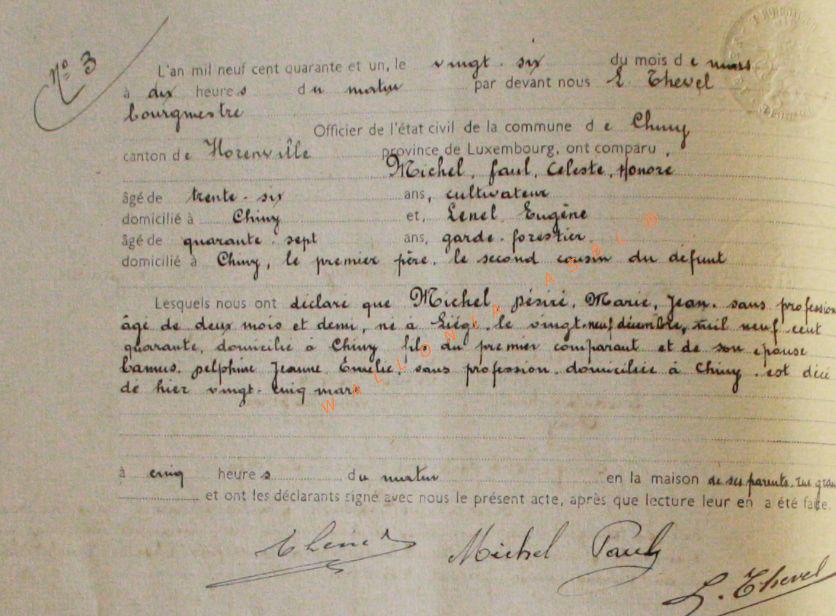 N° 3
L'an mil neuf cent quarante et un, le vingt-six du mois d e mars
à dix heure s d u matin par devant nous L. Thevel
bourgmestre
Officier de l'état civil de la commune d e Chiny
canton d e Florenville province de Luxembourg, ont comparu,
Michel, Paul, Céleste, Honoré
âgé de trente-six ans, cultivateur
domicilié à Chiny et, Lenel, Eugène
âgé de quarante-sept ans, garde-forestier
domicilié à Chiny, le premier père, le second cousin du défunt
Lesquels nous ont déclaré que Michel, Désiré, Marie, Jean, sans profession
âgé de deux mois et demi, né à Liège, le vingt-neuf décembre, mil neuf cent
quarante, domicilié à Chiny fils du premier comparant et de son épouse
Camus, Delphine Jeanne Emélie, sans profession, domiciliée à Chiny, est décé
dé hier vingt-cinq mars
à cinq heure s d u matin en la maison de ses parents, rue gran
et ont les déclarants signé avec nous le présent acte, après que lecture leur en a été faite.
Michel Paul
L. Thevel
WALLONIA ASBL